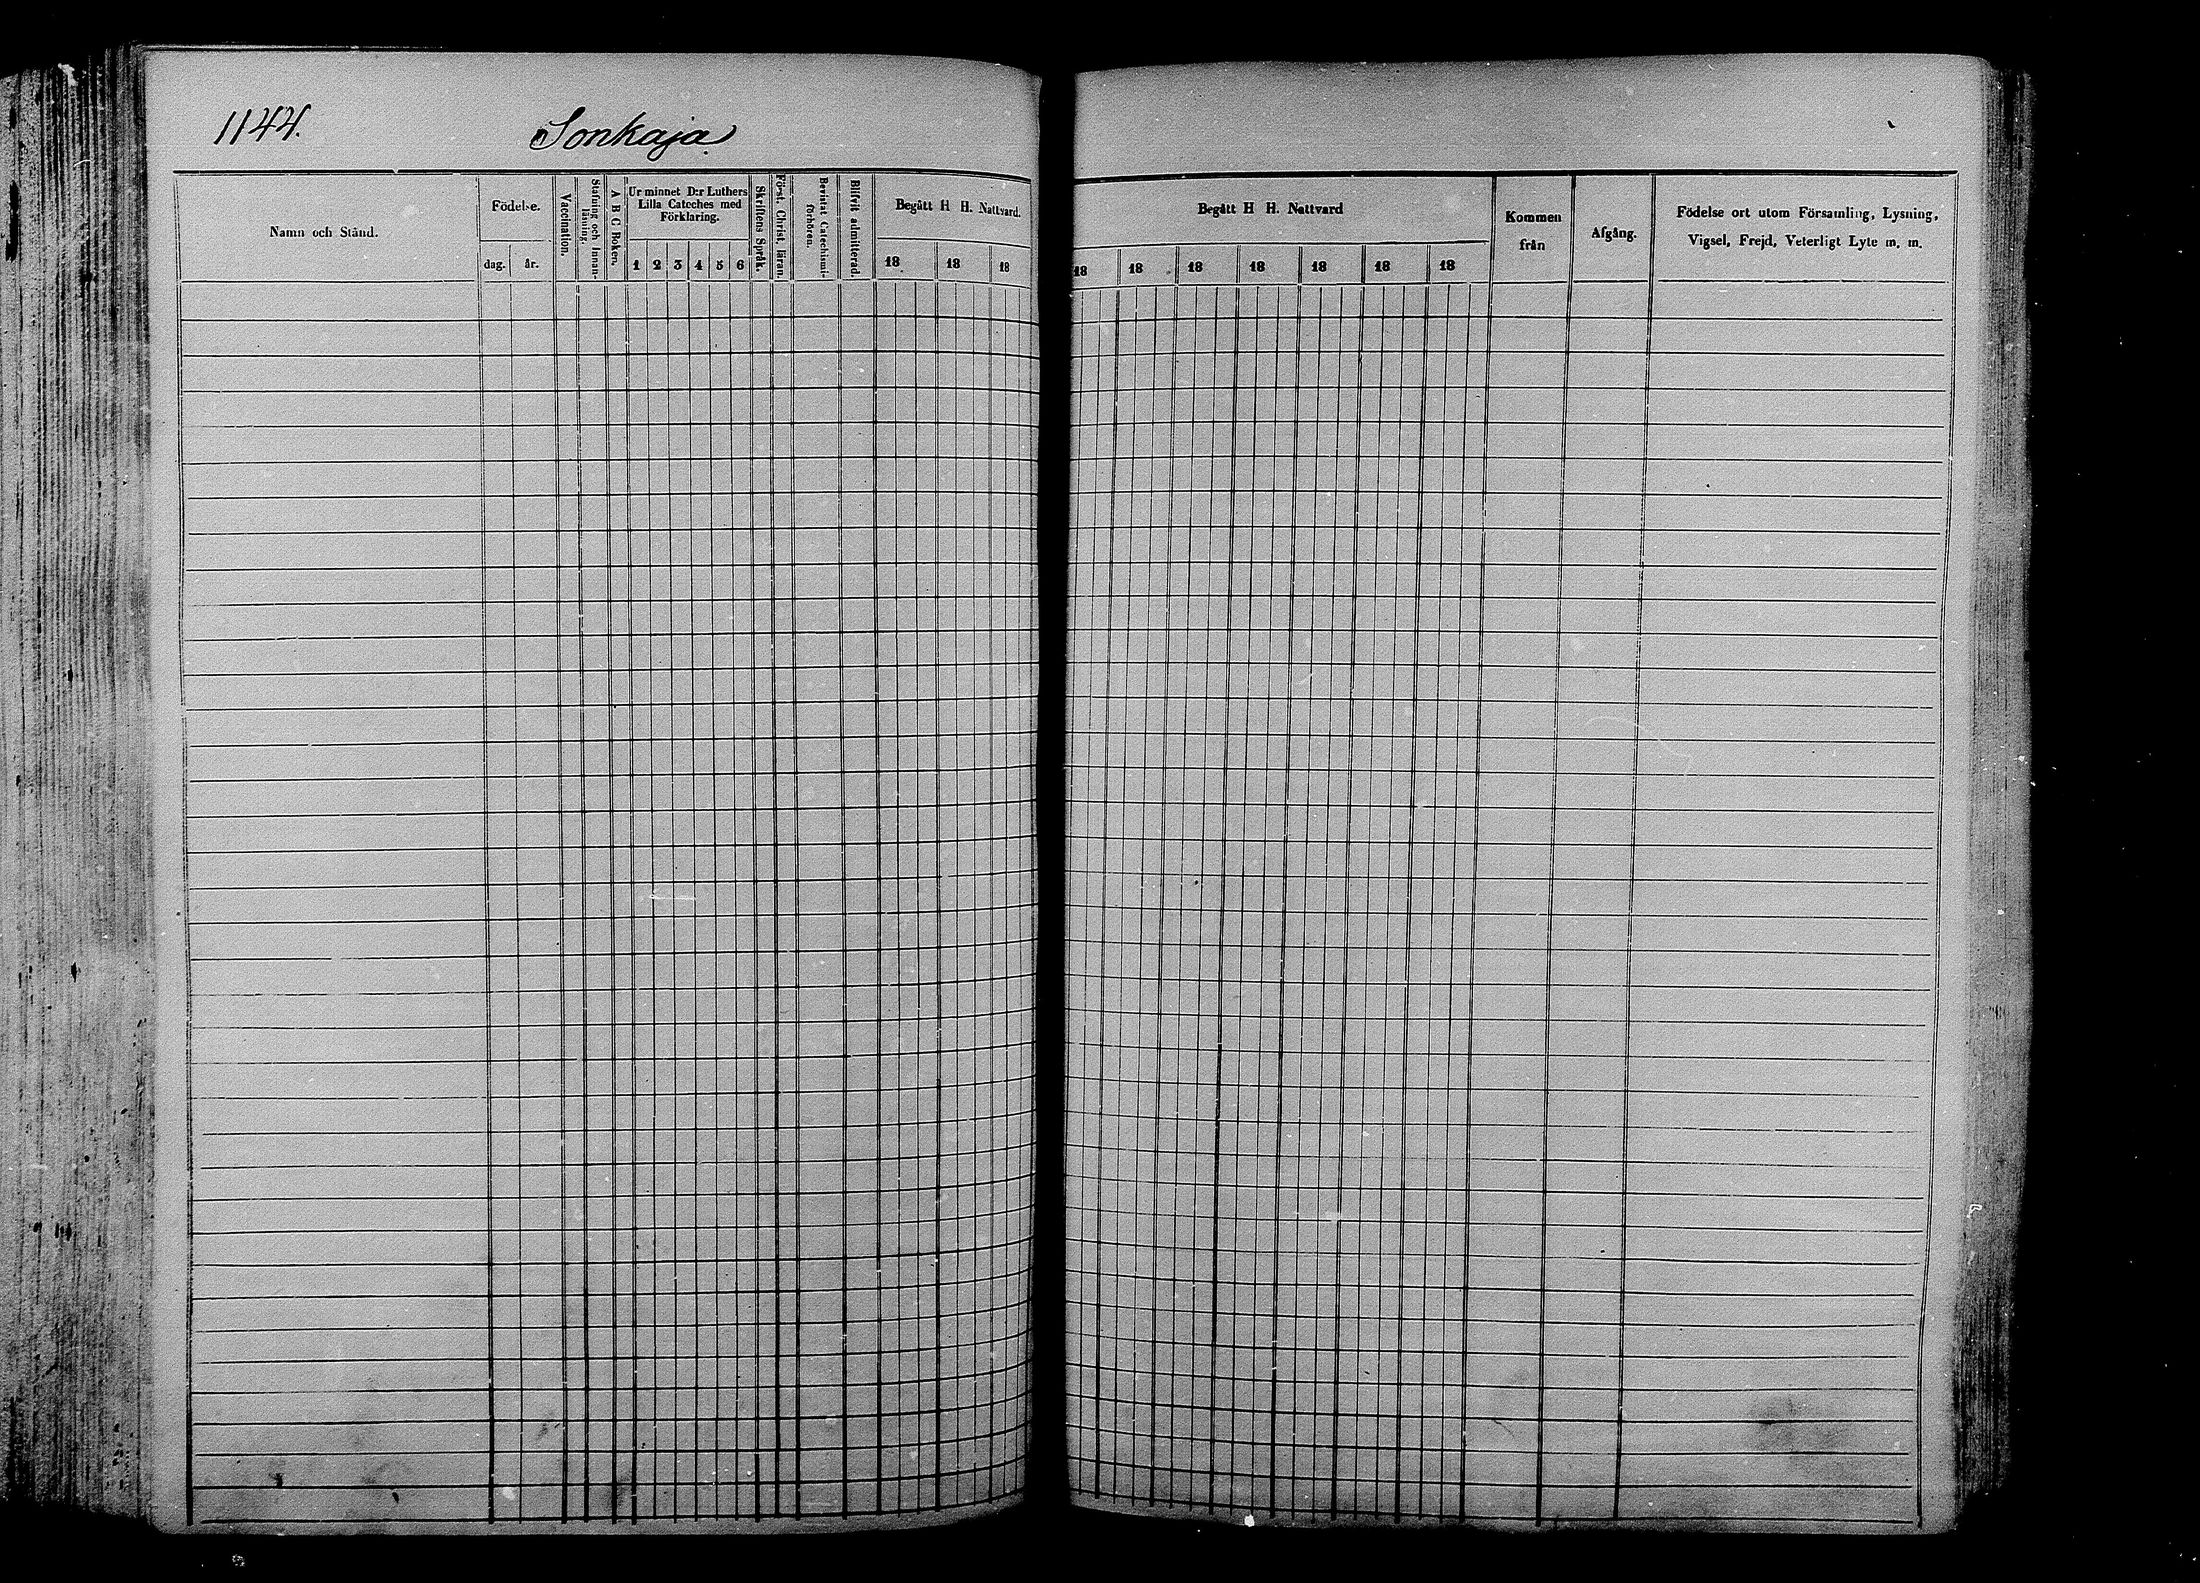 1144. Sonkaja
Namn och Stånd.
Födelse.
dag. år.
Vaccination.
Stafning och Innan-
läsning.
A B C Boken.
Ur minnet D:r Luthers
Lilla Cateches med
Förklaring.
1 2 3 4 5 6
Skriftens Språk.
Först. Christ. läran.
Bevistat Catechismi-
förhören.
Blifvit admitterad.
Begått H H. Nattvard.
18 18 18
Begått H H. Nattvard
18 18 18 18 18 18 18
Kommen
från
Afgång.
Födelse ort utom Församling, Lysning,
Vigsel, Frejd, Veterligt Lyte m. m.